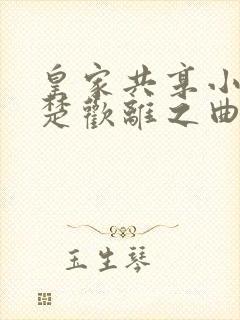 皇家共享小
楚歡離之曲
玉生琴